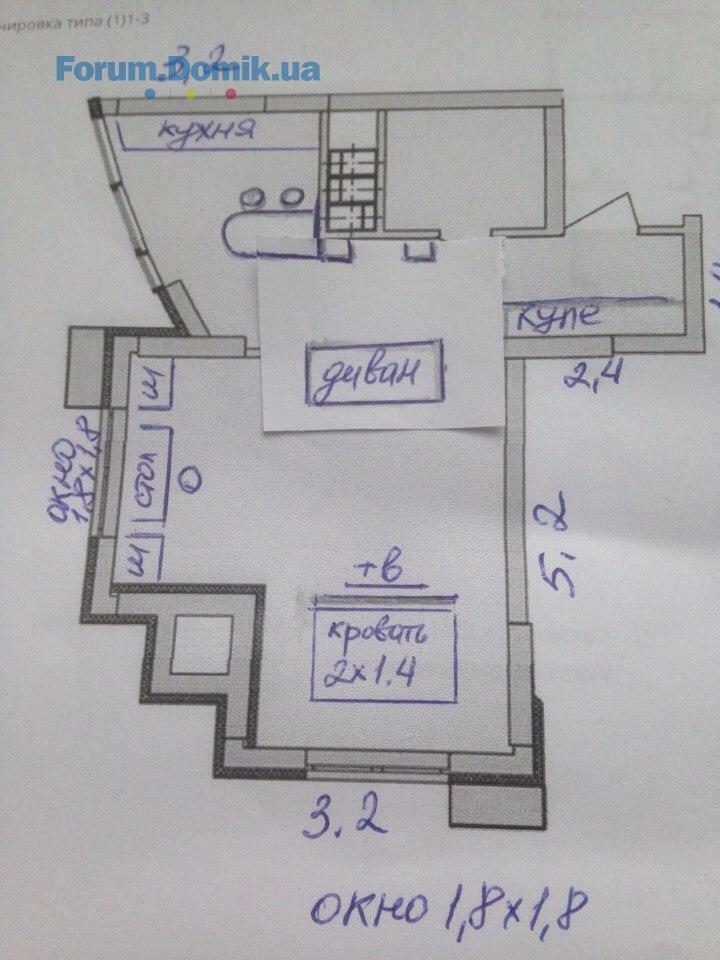 нировка типа (1)1-3
3,2
Forum.Domik.ua
кухня
купе
диван
2,4
ш
окно
1,8х1,8
стол
ш
5.2
тв
кровать
2х1.4
3.2
окно 1,8х1,8